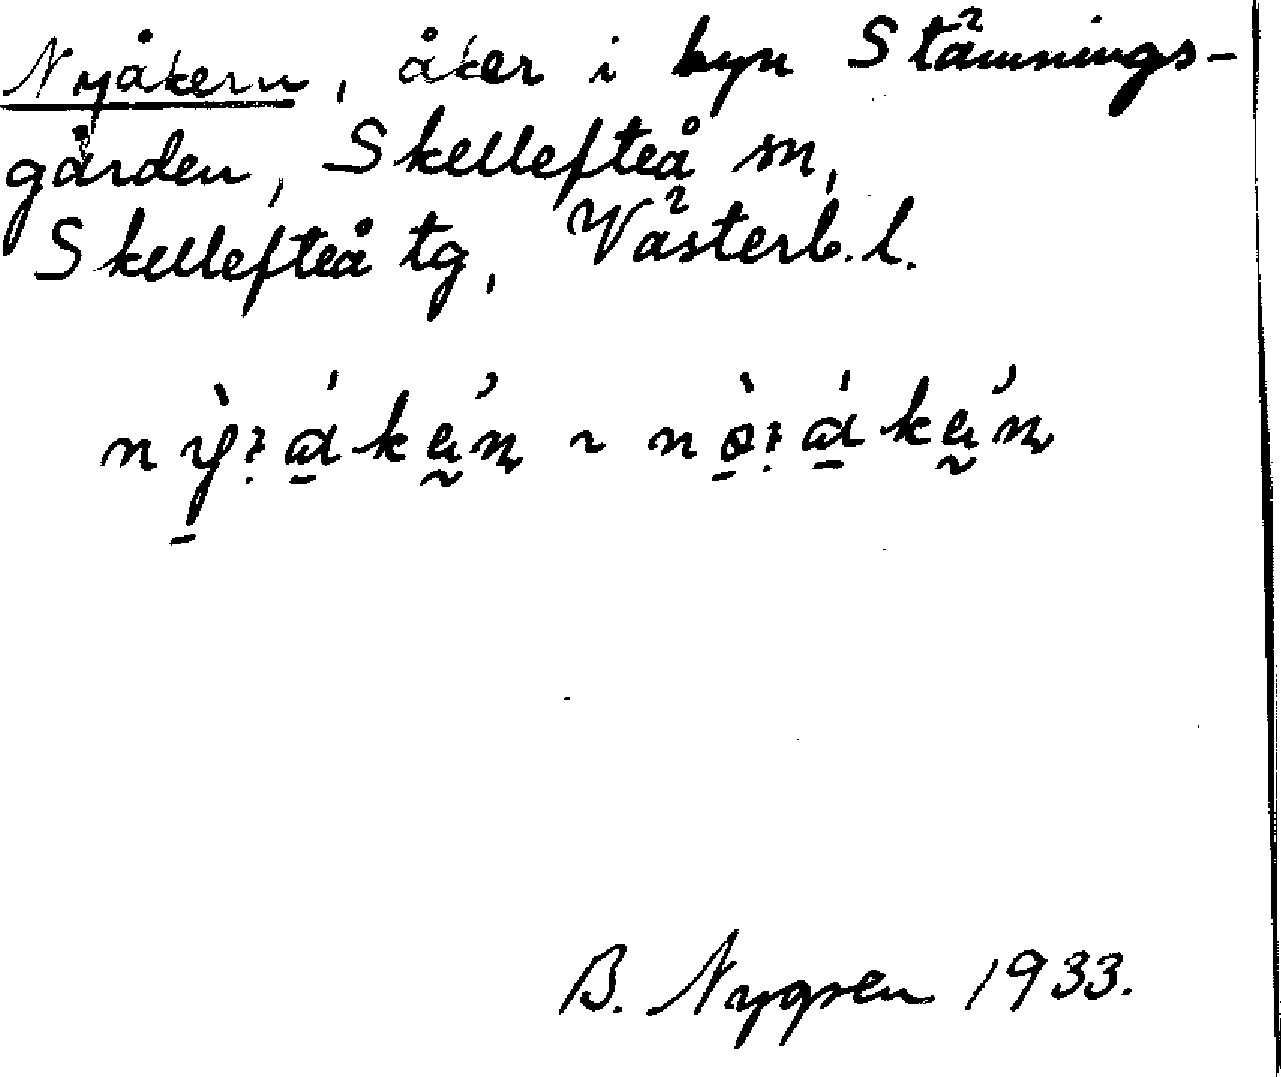 Nyåkern, åker i byn Stämnings-
gården, Skellefteå m,
Skellefteå tg, Västerb. l.
B. Nygren 1933.